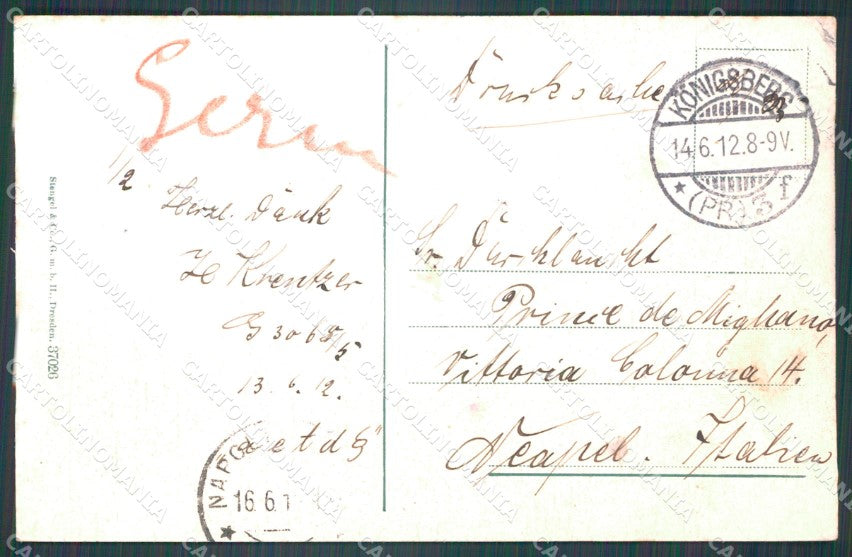 Germ
1/2
Herzl. Dank
H Krentzer
G 3068/5
13.6.12.
Stengel & Co., G. m. b. H., Dresden. 37026
NAPO
16.6.1
Drucksache
KÖNIGSBERG
14.6.12.8-9V.
★ (PR.) 3 f
Sr. Durchlaucht
Prince de Mighano,
Vittoria Colonna 14.
Neapel. Italien
CARTOLINOMANIA